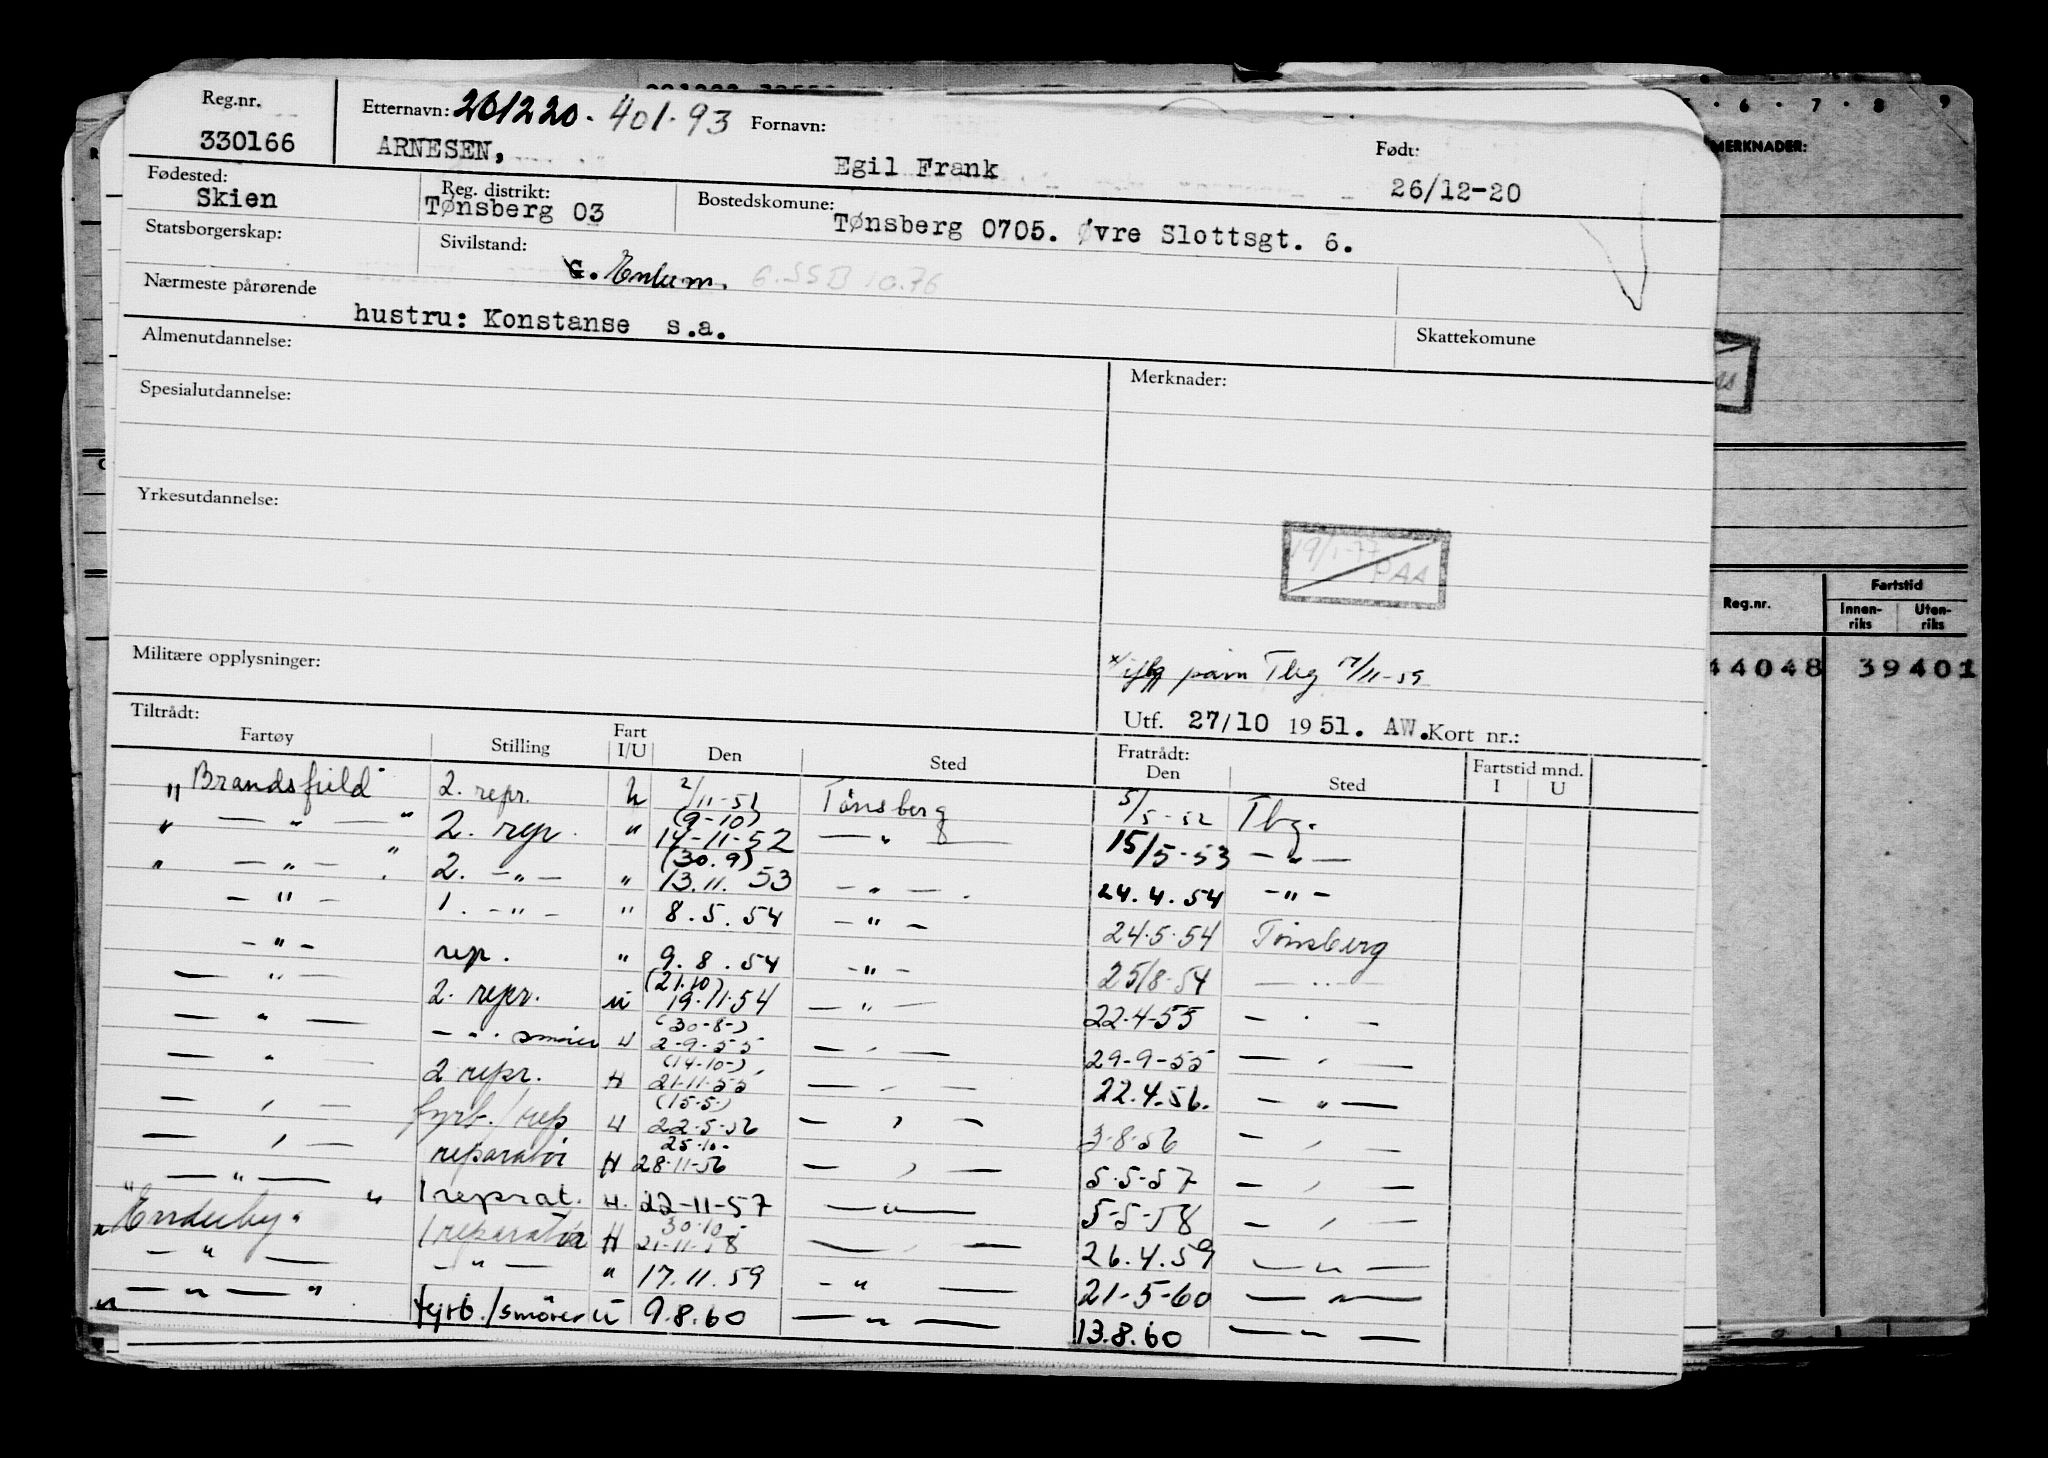 Reg.nr. Etternavn: 261220. 401.93 Fornavn: Født:
330166 ARNESEN, Egil Frank 26/12-20
Fødested: Reg. distrikt: Bostedskomune:
Skien Tønsberg 03 Tønsberg 0705. Øvre Slottsgt. 6.
Statsborgerskap: Sivilstand:
G. Enkem. 6.SSB 10.76
Nærmeste pårørende
hustru: Konstanse s.a.
Skattekomune
Almenutdannelse:
Merknader:
Spesialutdannelse:
Yrkesutdannelse:
19/1-77
PAA
Militære opplysninger:
påm Tbg 17/11-59
Utf. 27/10 1951. AW. Kort nr.:
Tiltrådt: Fratrådt:
Fartøy Stilling Fart I/U Den Sted Den Sted Fartstid mnd. I U
"Brandsfield" 2. repr. 2/11-51 Tönsberg 5/5-52 Tbg.
" — " — " 2. rep. " (9-10) 14-11-52 — " — 15/5-53 — " —
" — " — " 2. — " — " (30.9) 13.11.53 — " — 24.4.54 — " —
— " — 1. — " — " 8.5.54 — " — 24.5.54 Tönsberg
— " — rep. " 9.8.54 — " — 25/8-54 — " —
— " — 2. repr. U (21.10) 19.11.54 — " — 22-4-55 — " —
— " — — " — smörer H (30-8-) 2-9-55 — " — 29-9-55 — " —
— " — 2 repr. H (14-10-) 21-11-55 — " — 22.4.56. — " —
— " — fyrb. / rep H (15-5-) 22-5-56 — " — 3-8-56 — " —
— " — reparatör H 25-10- 28-11-56 — " — 5-5-57 — " —
— " — 1 reprat. H. 22-11-57 — " — 5-5-58 — " —
"Enderby" 1 reparatör H 30-10- 21-11-58 — " — 26.4.59 — " —
— " — — " — " 17.11.59 — " — 21-5-60 — " —
" — " — " fyrb. / smörer U 9.8.60 — " — 13.8.60 — " —
5 · 6 · 7 · 8 9
MERKNADER:
Reg.nr. Fartstid
Innenriks Utenriks
44048 39401